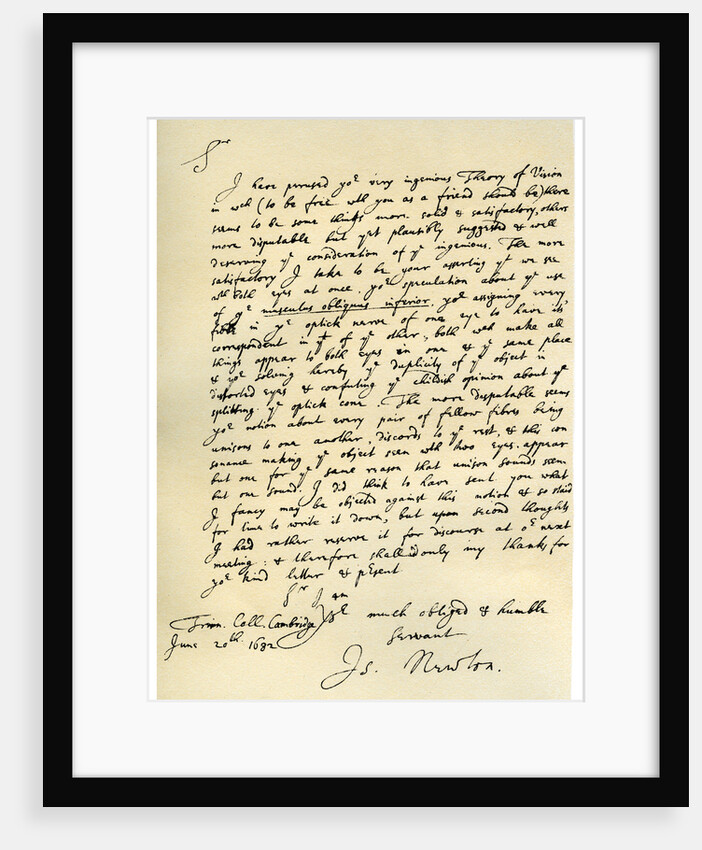 Sr
I have perused yor very ingenious Theory of Vision
in wch (to be free wth you as a friend should be) there
seems to be some things more solid & satisfactory, others
more disputable but yet plausibly suggested & well
deserving ye consideration of ye ingenious. The more
satisfactory I take to be your asserting yt we see
wth both eyes at once, yor speculation about ye use
of ye musculus obliquus inferior, yor assigning every
fibre in ye optick nerve of one eye to have its
correspondent in yt of ye other, both wch make all
things appear to both eyes in one & ye same place
& yor solving hereby ye duplicity of ye object in
distorted eyes & confuting ye childish opinion about ye
splitting ye optick cone. The more disputable seems
yor notion about every pair of fellow fibres being
unisons to one another, discords to ye rest, & this con
sonance making ye object seen wth two eyes appear
but one for ye same reason that unison sounds seem
but one sound. I did think to have sent you what
I fancy may be objected against this notion & so staid
for time to write it down, but upon second thoughts
I had rather reserve it for discourse at or next
meeting: & therefore shall add only my thanks for
yor kind letter & present
Sr I am
Yor much obliged & humble
Trin. Coll. Cambridge Servant
June 20th. 1682
Is. Newton.